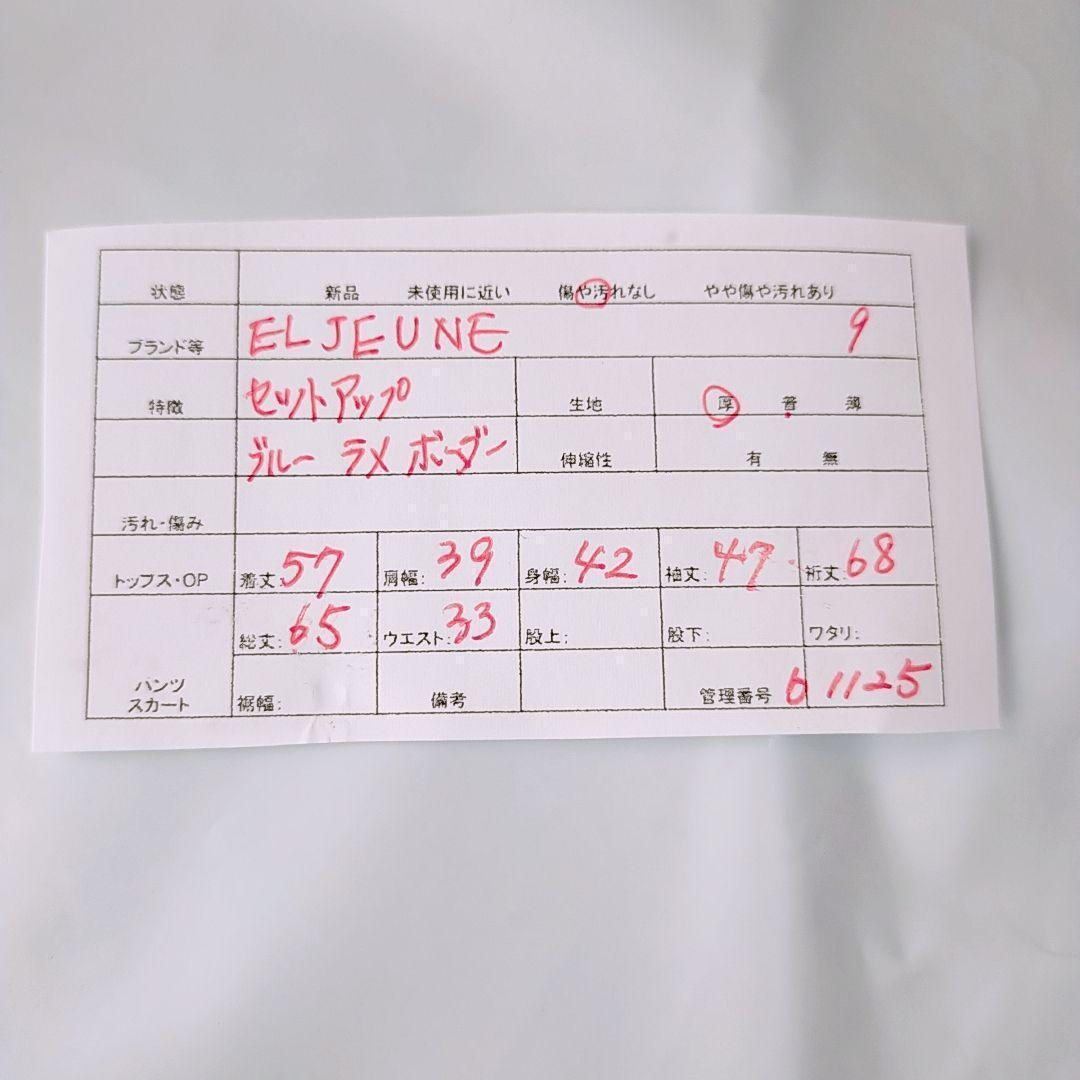 状態 新品 未使用に近い 傷や汚れなし やや傷や汚れあり
ブランド等 ELJEUNE 9
特徴 セットアップ 生地 厚 普 薄
ブルー ラメ ボーダー 伸縮性 有 無
汚れ・傷み
トップス・OP 着丈:57 肩幅:39 身幅:42 袖丈:47 裄丈:68
総丈:65 ウエスト:33 股上: 股下: ワタリ:
パンツ
スカート 裾幅: 備考 管理番号 61125